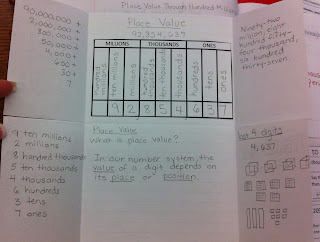 Place Value Through Hundred M
90,000,000 +
2,000,000 +
800,000 +
50,000 +
4,000 +
600 +
30 +
7
Place Value
92,854,637
MILLIONS THOUSANDS ONES
hundred millions ten millions millions hundred thousands ten thousands thousands hundreds tens ones
9 2 8 5 4 6 3 7
Ninety-two
million, eight
hundred fifty-
four thousand,
six hundred
thirty-seven
9 ten millions
2 millions
8 hundred thousands
5 ten thousands
4 thousands
6 hundreds
3 tens
7 ones
Place Value
What is place value?
In our number system, the
value of a digit depends on
its place or position.
last 4 digits
4,637